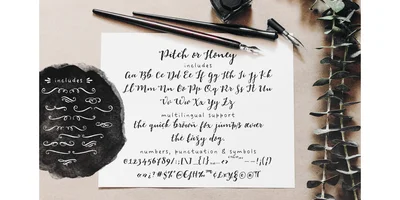 Pitch or Honey
includes
Aa Bb Cc Dd Ee Ff Gg Hh Ii Jj Kk
Ll Mm Nn Oo Pp Qq Rr Ss Tt Uu
Vv Ww Xx Yy Zz
multilingual support
the quick brown fox jumps over
the lazy dog.
numbers, punctuation & symbols
includes